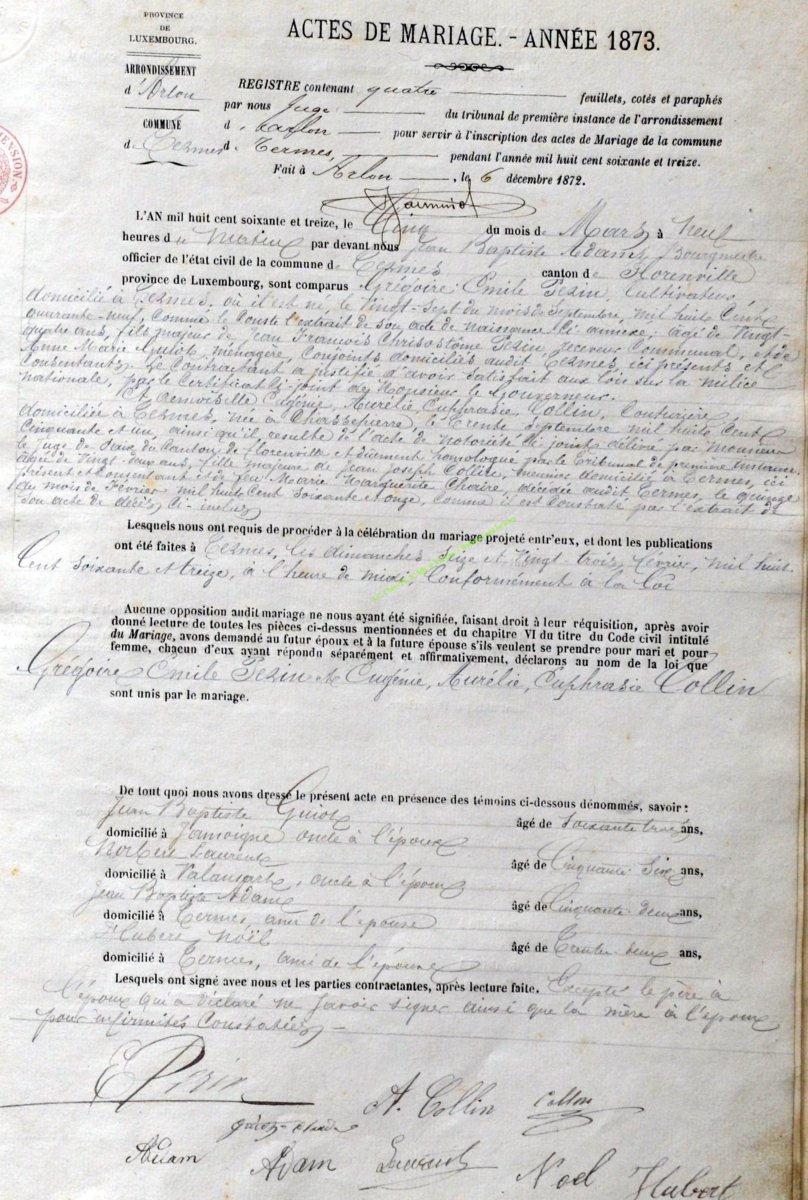 PROVINCE
DE
LUXEMBOURG.
ARRONDISSEMENT
d'Arlon
COMMUNE
de Termes
ACTES DE MARIAGE. - ANNÉE 1873.
REGISTRE contenant quatre feuillets, cotés et paraphés
par nous Juge du tribunal de première instance de l'arrondissement
d'Arlon pour servir à l'inscription des actes de Mariage de la commune
de Termes, pendant l'année mil huit cent soixante et treize.
Fait à Arlon, le 6 décembre 1872.
L'AN mil huit cent soixante et treize, le Cinq du mois de Mars à neuf
heures du matin par devant nous Jean Baptiste Adam, Bourgmestre
officier de l'état civil de la commune de Termes canton de Florenville
province de Luxembourg, sont comparus Grégoire Emile Pesin, Cultivateur,
domicilié à Termes, où il est né, le vingt-Sept du mois de Septembre, mil huit Cent
quarante-neuf, Comme le Conste l'extrait de Son acte de naissance Ci annexé; âgé de Vingt-
quatre ans, fils majeur de Jean François Chrisostôme Pesin, receveur Communal, et de
Anne Marie Guiot, ménagère, Conjoints domiciliés audit Termes, ici présents et
Consentants. Le Contractant a justifié d'avoir Satisfait aux lois sur la milice
nationale, par le Certificat Ci-joint de Monsieur le Gouverneur.
Et Demoiselle Eugénie, Aurélie, Euphrasie Collin, Couturière,
domiciliée à Termes, née à Chassepierre, le trente Septembre mil huit Cent
Cinquante et un ainsi qu'il résulte de l'acte de notoriété Ci joint délivré par Monsieur
le Juge de Paix du Canton de Florenville et dûment homologué par le Tribunal de première Instance,
âgée de Vingt-deux ans, fille majeure de Jean Joseph Collin, domicilié à Termes, ici
présent et Consentant et de feu Marie Marguerite décédée audit Termes, le quinze
du mois de Février mil huit Cent Soixante et onze, Comme il est Constaté par l'extrait de
Son acte de décès Ci-inclus
Lesquels nous ont requis de procéder à la célébration du mariage projeté entr'eux, et dont les publications
ont été faites à Termes, les dimanches Seize et Vingt-trois Février, mil huit
Cent Soixante et treize, à l'heure de midi, Conformément à la loi
Aucune opposition audit mariage ne nous ayant été signifiée, faisant droit à leur réquisition, après avoir
donné lecture de toutes les pièces ci-dessus mentionnées et du chapitre VI du titre du Code civil intitulé
du Mariage, avons demandé au futur époux et à la future épouse s'ils veulent se prendre pour mari et pour
femme, chacun d'eux ayant répondu séparément et affirmativement, déclarons au nom de la loi que
Grégoire Emile Pesin et Eugénie, Aurélie, Euphrasie Collin
sont unis par le mariage.
De tout quoi nous avons dressé le présent acte en présence des témoins ci-dessous dénommés, savoir :
Jean Baptiste Guiot âgé de Soixante trois ans,
domicilié à Jamoigne oncle à l'époux
Norbert Laurent âgé de Cinquante Six ans,
domicilié à Valansart, oncle à l'époux
Jean Baptiste Adam âgé de Cinquante-deux ans,
domicilié à Termes, ami de l'épouse
Hubert Noël âgé de Trente-deux ans,
domicilié à Termes, ami de l'épouse
Lesquels ont signé avec nous et les parties contractantes, après lecture faite. Excepté le père à
l'époux qui a déclaré ne Savoir signer ainsi que la mère à l'époux
pour infirmités Constatées
E Pesin
A. Collin
Collin
Adam
Adam
Laurent
Noel Hubert